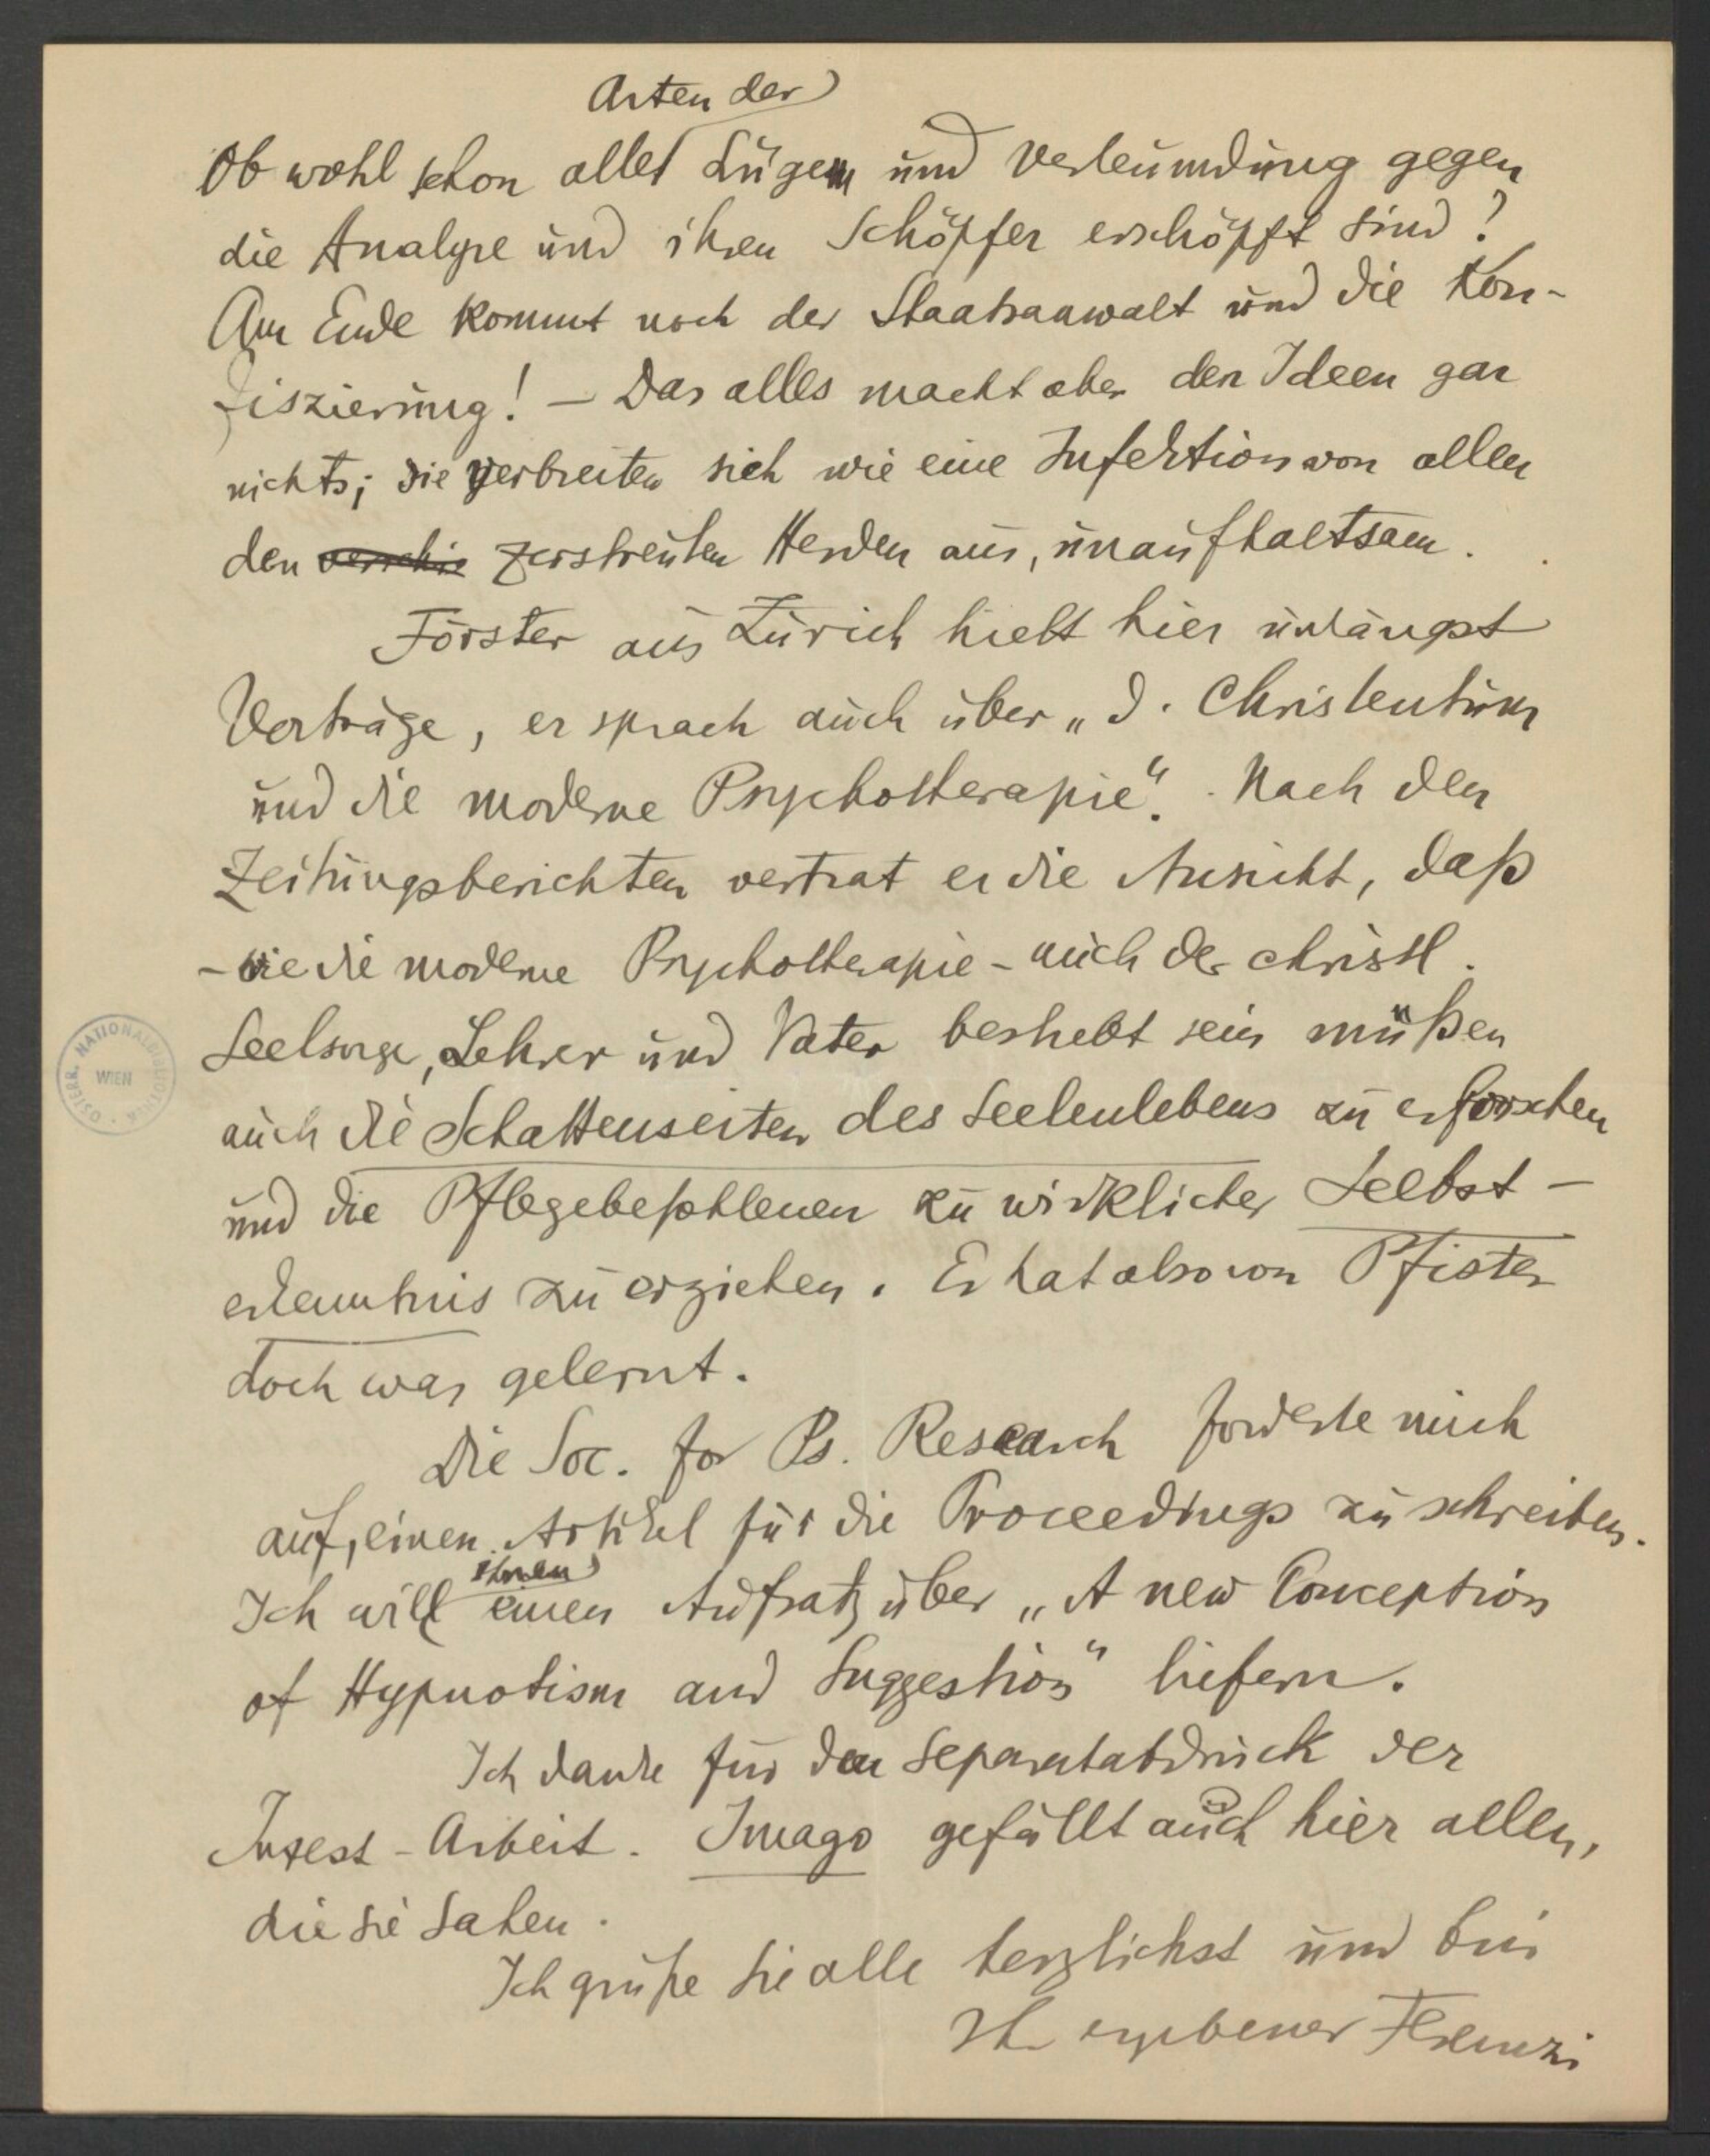 Arten der
Ob wohl schon alle Lügen und Verleumdung gegen
die Analyse und ihren Schöpfer erschöpft sind?
Am Ende kommt noch der Staatsanwalt und die Kon-
fiszierung! – Das alles macht aber den Ideen gar
nichts; sie verbreiten sich wie eine Infektion von allen
den verschie zerstreuten Herden aus, unaufhaltsam.
Förster aus Zürich hielt hier unlängst
Vorträge, er sprach auch über „d. Christentum
und die moderne Psychotherapie“. Nach den
Zeitungsberichten vertrat er die Ansicht, daß
– wie die moderne Psychotherapie – auch der christl.
Seelsorge, Lehrer und Vater bestrebt sein müßen
auch die Schattenseiten des Seelenlebens zu erforschen
und die Pflegebefohlenen zu wirklicher Selbst-
erkenntnis zu erziehen. Er hat also von Pfister
doch was gelernt.
Die Soc. for Ps. Research forderte mich
auf, einen Artikel für die Proceedings zu schreiben.
ihnen
Ich will einen Aufsatz über „A new Conception
of Hypnotism and Suggestion“ liefern.
Ich danke für den Separatabdruck der
Inzest-Arbeit. Imago gefällt auch hier allen,
die sie sahen.
Ich grüße Sie alle herzlichst und bin
Ihr ergebener Ferenczi
ÖSTERR. NATIONALBIBLIOTHEK
WIEN